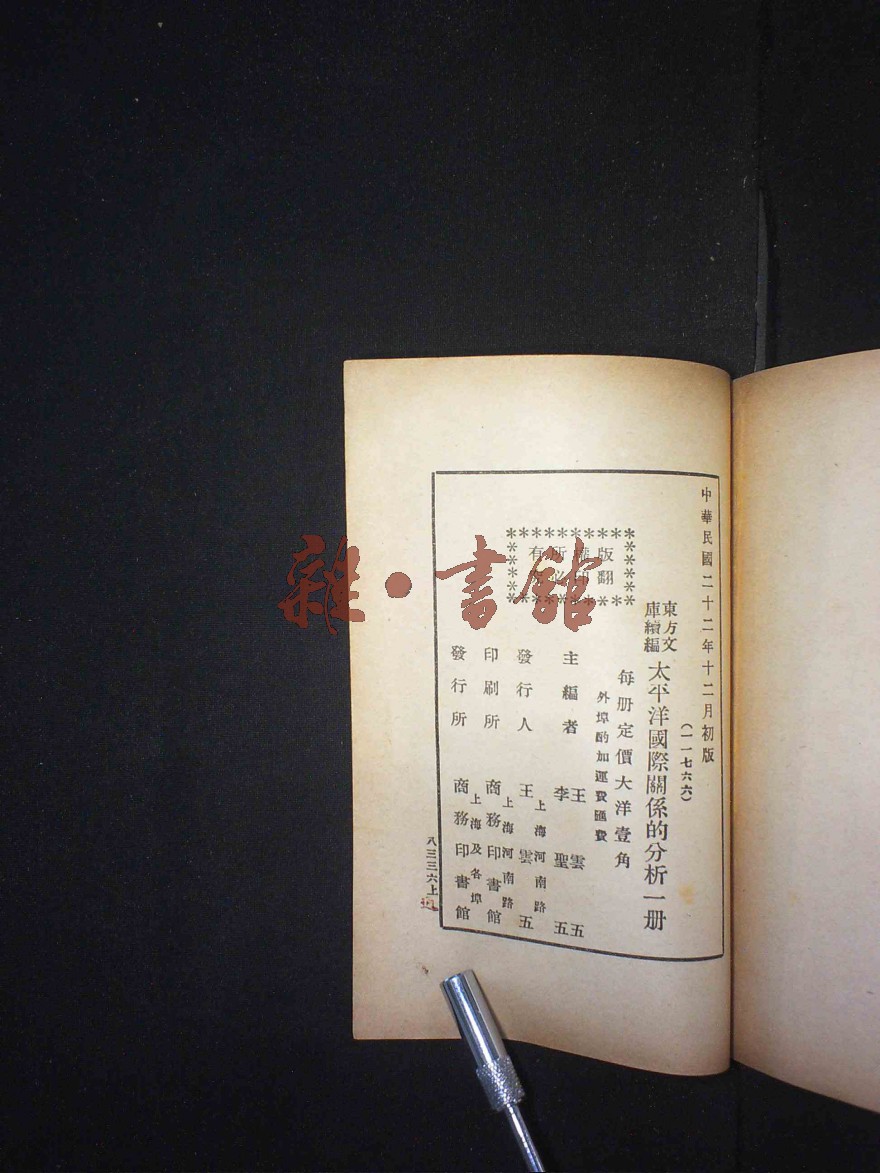 中華民國二十二年十二月初版
(一一七六六)
東方文庫續編
太平洋國際關係的分析一册
每册定價大洋壹角
外埠酌加運費匯費
版權所有
翻印必究
主編者
王雲五
李聖五
發行人
上海河南路
王雲五
印刷所
上海河南路
商務印書館
發行所
上海及各埠
商務印書館
八三三六上
雜·書館